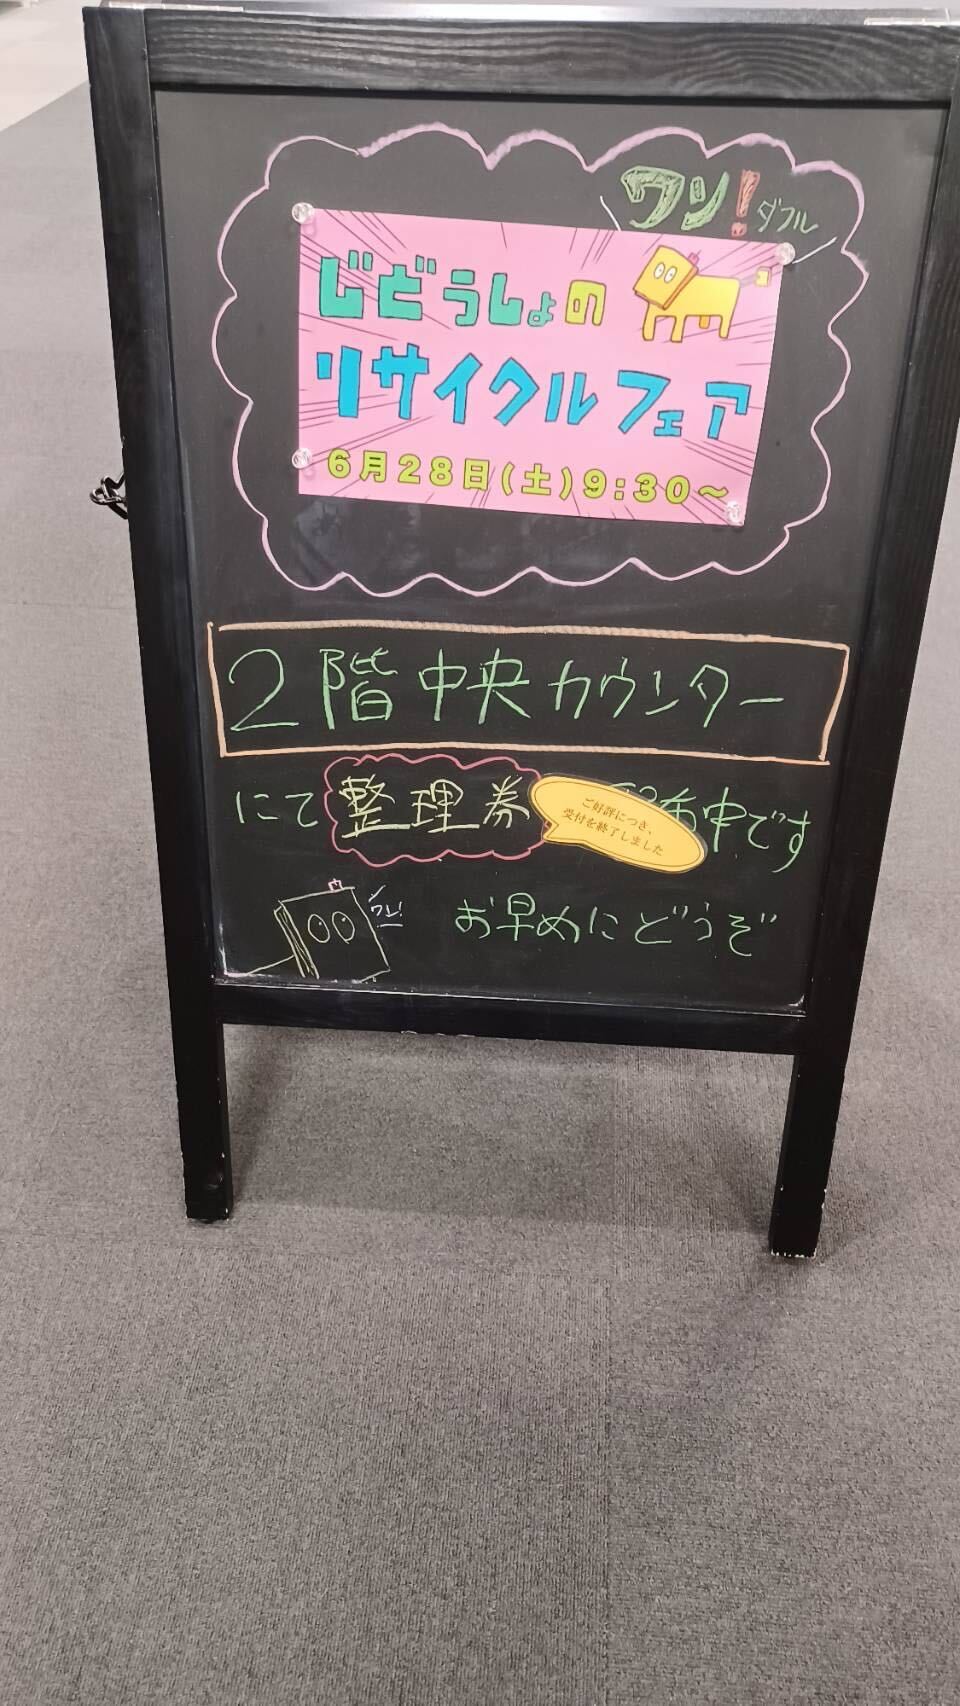 ワン!ダフル
じどうしょの
リサイクルフェア
6月28日(土)9:30～
2階中央カウンター
にて整理券 布中です
ご好評につき、
受付を終了しました
ワン!
お早めにどうぞ